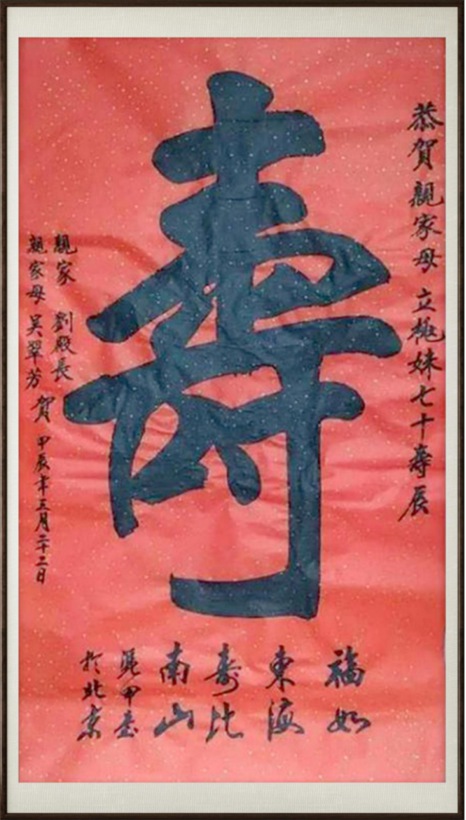 恭賀親家母立桃妹七十壽辰
壽
福如
東海
壽比
南山
甲書
於北京
親家 劉殿長
親家母 吴翠芳 賀 甲辰年五月二十二日